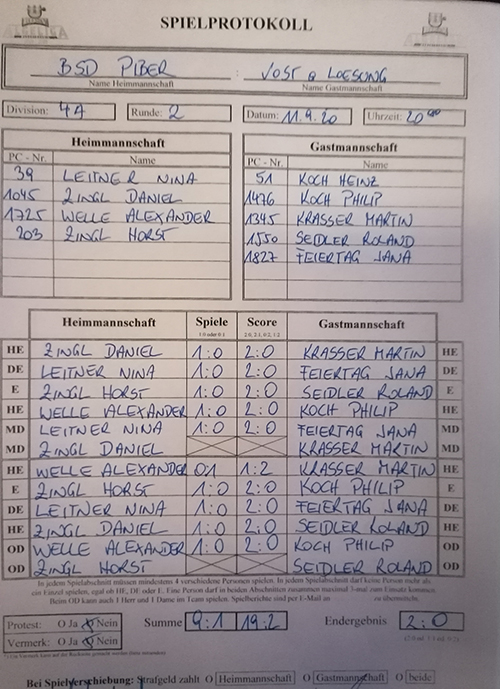 SPIELPROTOKOLL
BSD PIBER : JOST & LOESUNG
Name Heimmannschaft Name Gastmannschaft
Division: 4A Runde: 2 Datum: 11.9.20 Uhrzeit: 20 00
Heimmannschaft Gastmannschaft
PC - Nr. Name PC - Nr. Name
39 LEITNER NINA 51 KOCH HEINZ
1045 ZINGL DANIEL 1476 KOCH PHILIP
1725 WELLE ALEXANDER 1345 KRASSER MARTIN
203 ZINGL HORST 1550 SEIDLER ROLAND
1827 FEIERTAG JANA
Heimmannschaft Spiele Score Gastmannschaft
1:0 oder 0:1 2:0, 2:1, 0:2, 1:2
HE ZINGL DANIEL 1:0 2:0 KRASSER MARTIN HE
DE LEITNER NINA 1:0 2:0 FEIERTAG JANA DE
E ZINGL HORST 1:0 2:0 SEIDLER ROLAND E
HE WELLE ALEXANDER 1:0 2:0 KOCH PHILIP HE
MD LEITNER NINA 1:0 2:0 FEIERTAG JANA MD
MD ZINGL DANIEL KRASSER MARTIN MD
HE WELLE ALEXANDER 01 1:2 KRASSER MARTIN HE
E ZINGL HORST 1:0 2:0 KOCH PHILIP E
DE LEITNER NINA 1:0 2:0 FEIERTAG JANA DE
HE ZINGL DANIEL 1:0 2:0 SEIDLER ROLAND HE
OD WELLE ALEXANDER 1:0 2:0 KOCH PHILIP OD
OD ZINGL HORST SEIDLER ROLAND OD
In jedem Spielabschnitt müssen mindestens 4 verschiedene Personen spielen. In jedem Spielabschnitt darf keine Person mehr als
ein Einzel spielen, egal ob HE, DE oder E. Eine Person darf in beiden Abschnitten zusammen maximal 3-mal zum Einsatz kommen.
Beim OD kann auch 1 Herr und 1 Dame im Team spielen. Spielberichte sind per E-Mail an zu übermitteln.
Protest: O Ja O Nein Summe 9:1 19:2 Endergebnis 2:0
Vermerk: O Ja O Nein
Bei Spielverschiebung: Strafgeld zahlt O Heimmannschaft O Gastmannschaft O beide